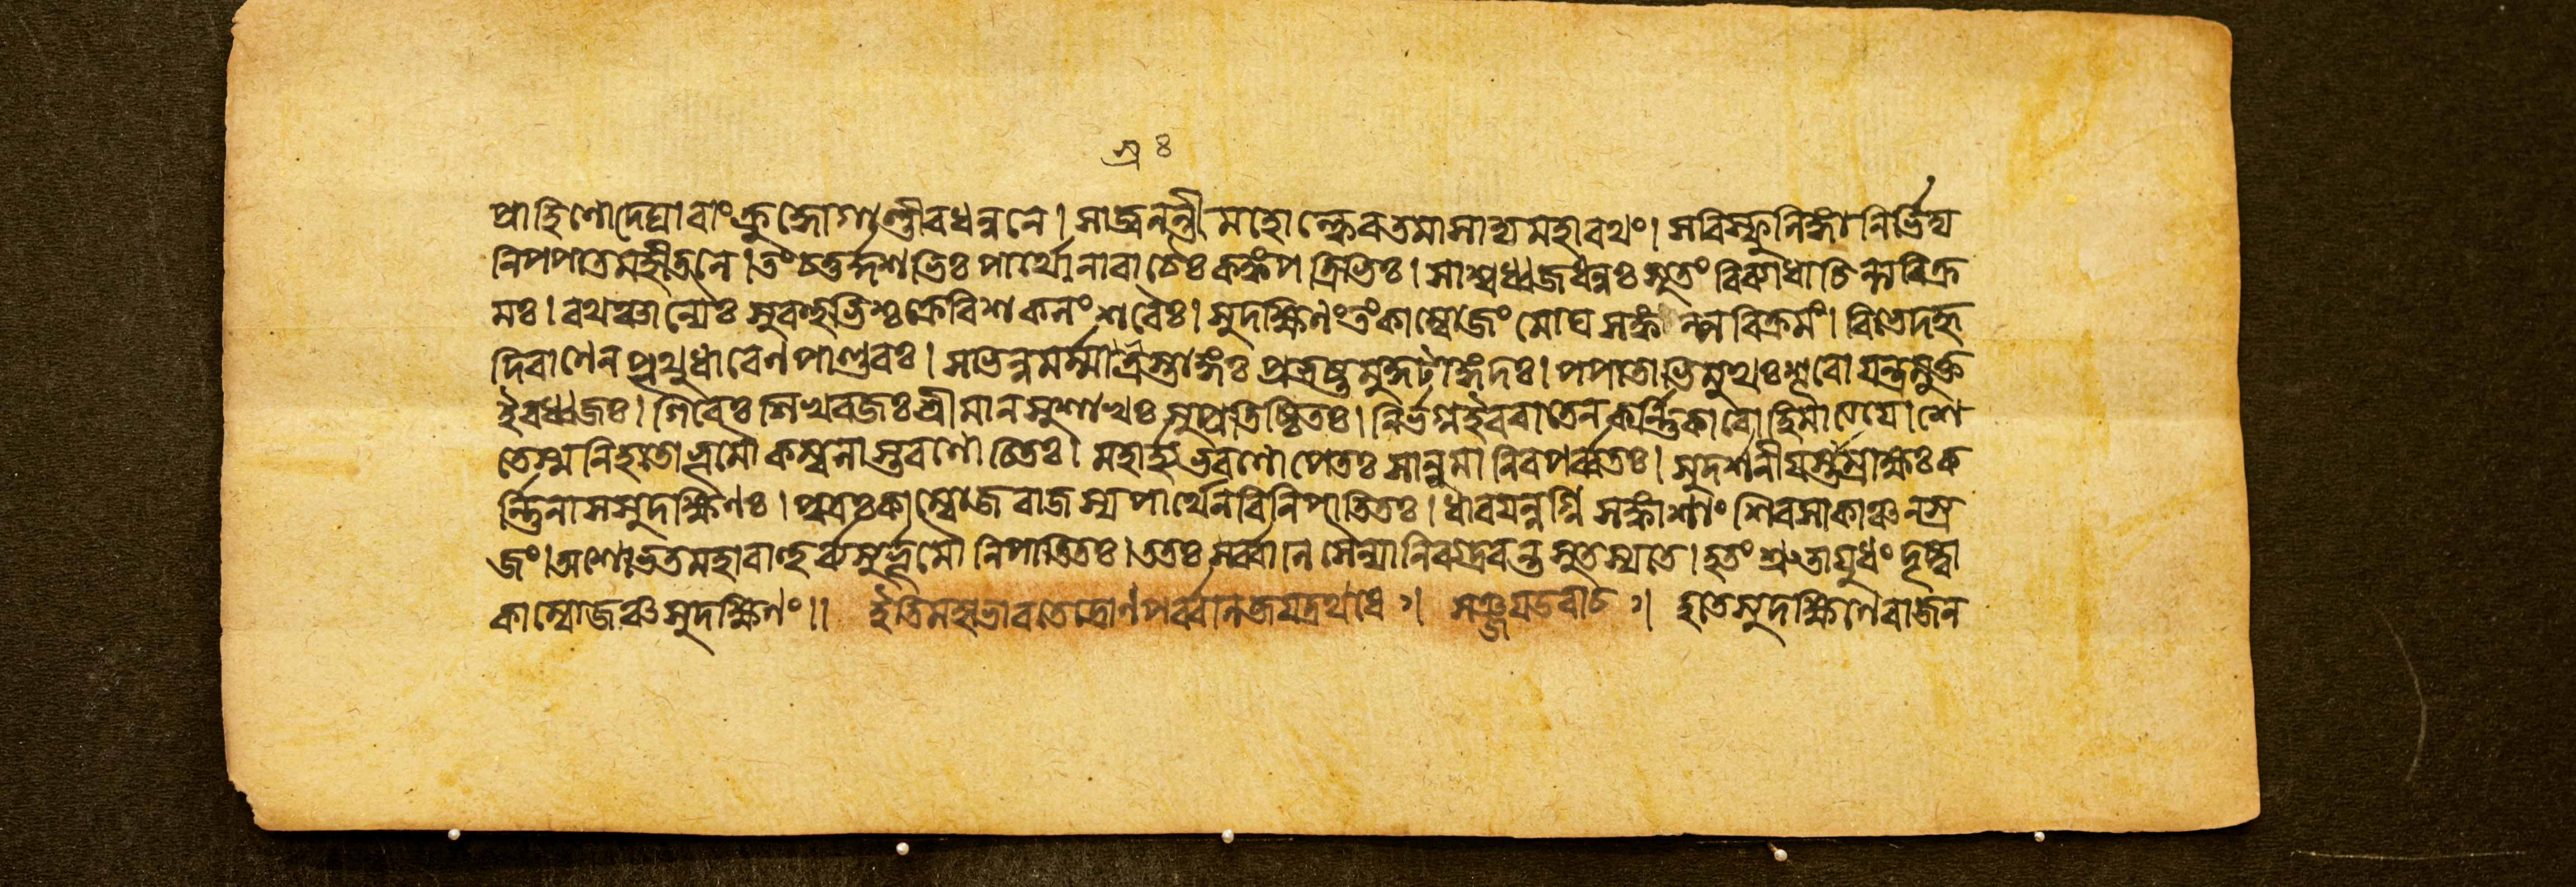 প্ৰাহিণোদ্দেঘাৰাং ক্ৰুদ্ধো গাণ্ডীবধন্বনে। সা জ্বলন্তী মহোল্কেব তমাসাদ্য মহাৰথং। সবিস্ফুলিঙ্গা নিৰ্ভিদ্য
নিপপাত মহীতলে। তং চতুৰ্দ্দশভিঃ পাৰ্থো নাৰাচৈঃ কঙ্কপত্ৰিভিঃ। সাশ্বধ্বজধনুঃ সূতং বিব্যাধাচিন্ত্যবিক্ৰ
মঃ। ৰথঞ্চান্যৈঃ সুবহুভিশ্চক্ৰে বিশকলং শৰৈঃ। সুদক্ষিণং তং কাম্বোজং মোঘসঙ্কল্পবিক্ৰমং। বিভেদ হৃ
দি বাণেন পৃথুধাৰেণ পাণ্ডবঃ। স ভিন্নমৰ্ম্মা স্ৰস্তাঙ্গঃ প্ৰভ্ৰষ্টমুকুটাঙ্গদঃ। পপাতাভিমুখঃ শূৰো যন্ত্ৰমুক্ত
ইব ধ্বজঃ। গিৰেঃ শিখৰজঃ শ্ৰীমান সুশাখঃ সুপ্ৰতিষ্ঠিতঃ। নিৰ্ভগ্ন ইব বাতেন কৰ্ণিকাৰো হিমাত্যয়ে। শে
তে স্ম নিহতো ভূমৌ কম্বলাস্তৰণোচিতঃ। মহাৰ্হাভৰণোপেতঃ সানুমানিব পৰ্ব্বতঃ। সুদৰ্শনীয়স্তাম্ৰাক্ষঃ ক
ৰ্ণিনা স সুদক্ষিণঃ। পুত্ৰঃ কাম্বোজৰাজস্য পাৰ্থেন বিনিপাতিতঃ। ধাৰয়ন্নগ্নিসঙ্কাশাং শিৰসা কাঞ্চনস্ৰ
জং। অশোভত মহাবাহুৰ্ব্যসুৰ্ভূমৌ নিপাতিতঃ। ততঃ সৰ্ব্বানি সৈন্যানি ব্যদ্ৰবন্ত সুতস্য তে। হতং শ্ৰুতায়ুধং দৃষ্ট্বা
কাম্বোজঞ্চ সুদক্ষিণং॥ ইতি মহাভাৰতে দ্ৰোণপৰ্ব্বনি জয়দ্ৰথবধে ঃ। সঞ্জয় উবাচ ঃ। হতে সুদক্ষিণে ৰাজন